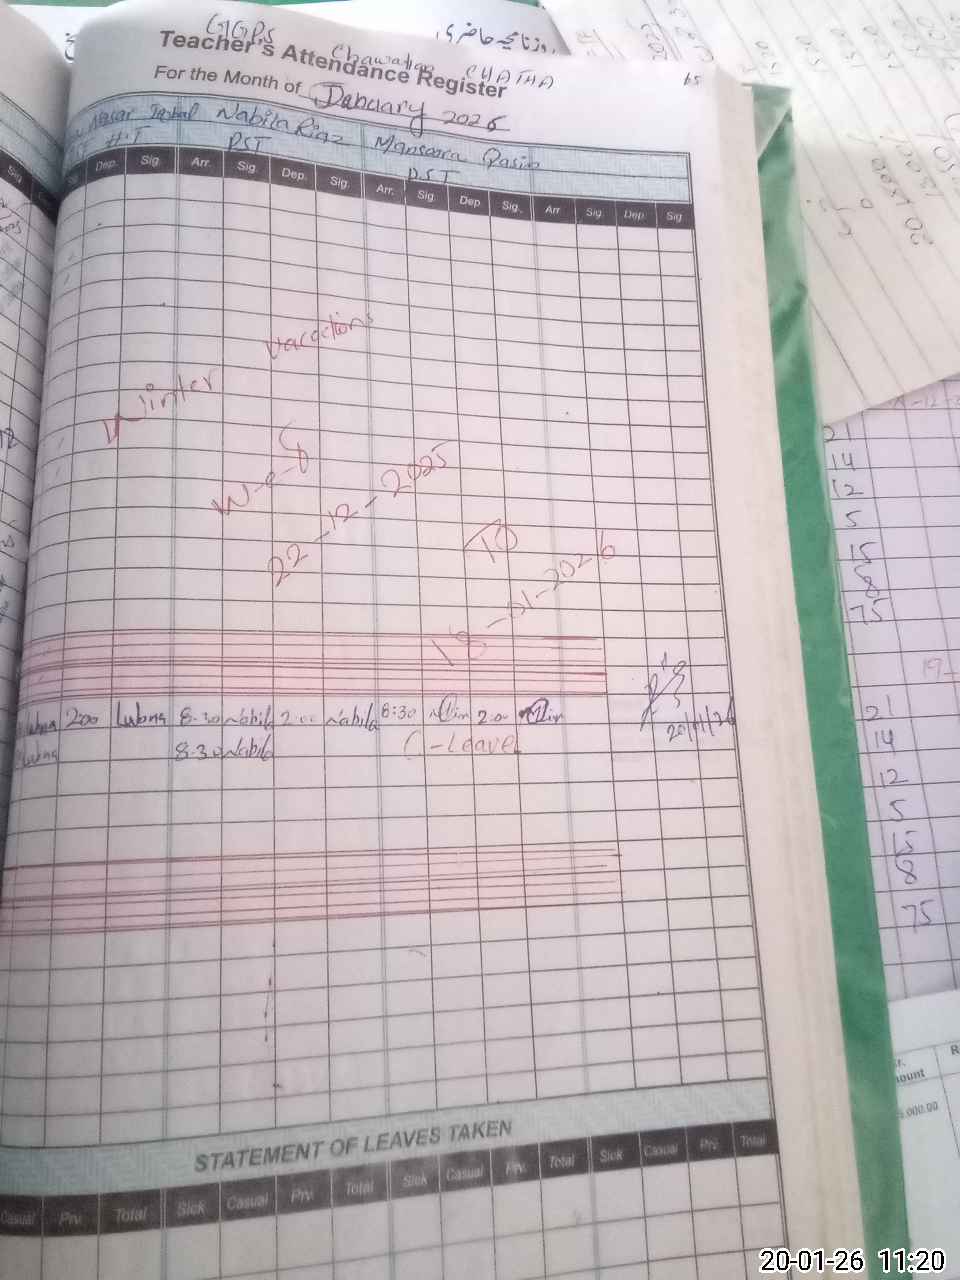 GGPS Chawalian CHATHA
روزنامچہ حاضری
Teacher's Attendance Register
65
For the Month of January 2026
Nasar Iqbal Nabila Riaz Mansoora Qasim
H.T PST PST
Sig. Dep. Sig. Arr. Sig. Dep. Sig. Arr. Sig. Dep. Sig. Arr. Sig. Dep. Sig
Winter vacations
w-e-f
22-12-2025
To
18-01-2026
Lubna 2:00 Lubna 8:30 Nabila 2:00 Nabila 8:30 2:00
20/1/26
Lubna 8:30 Nabila C-Leave
STATEMENT OF LEAVES TAKEN
Casual Prv. Total Sick Casual Prv. Total Sick Casual Prv. Total Sick Casual Prv. Total
21
14
12
5
15
8
75
21
14
12
5
15
8
75
mount
5,000.00
20-01-26 11:20